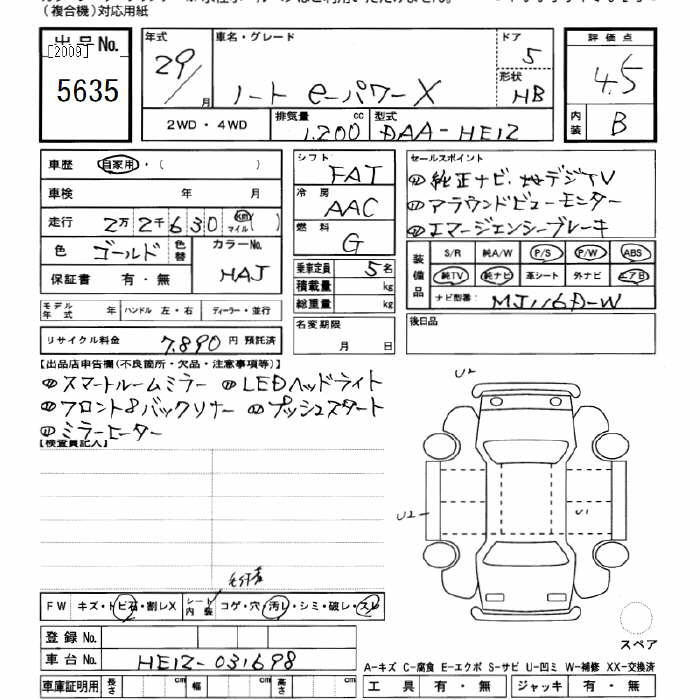 (複合機)対応用紙
出品No.
[2009]
5635
年式 29/ 月
車名・グレード
ノート e-パワーX
ドア 5
形状 HB
評価点 4.5
内装 B
2WD・4WD
排気量 1,200 cc
型式 DAA-HE12
車歴 自家用・( )
車検 年 月
走行 2万2千630 km マイル( )
色 ゴールド 色替
カラーNo. HAJ
保証書 有・無
モデル年式 年 ハンドル 左・右 ディーラー・並行
リサイクル料金 7,890円 預託済
シフト FAT
冷房 AAC
燃料 G
乗車定員 5名
積載量 kg
総重量 kg
名変期限
月 日
セールスポイント
純正ナビ、地デジTV
アラウンドビューモニター
エマージェンシーブレーキ
装備品
S/R 純A/W P/S P/W ABS
純TV 純ナビ 革シート 外ナビ エアB
ナビ型番: MJ116D-W
後日品
【出品店申告欄(不良箇所・欠品・注意事項等)】
スマートルームミラー LEDヘッドライト
フロント&バックソナー プッシュスタート
ミラーヒーター
【検査員記入】
FW キズ・トビ石・割レX
シート内装 コゲ・穴・汚レ・シミ・破レ・スレ
登録No.
車台No. HE12-031698
車庫証明用 長さ cm 幅 cm 高さ cm
U2
U2
U1
スペア
A-キズ C-腐食 E-エクボ S-サビ U-凹ミ W-補修 XX-交換済
工具 有・無 ジャッキ 有・無